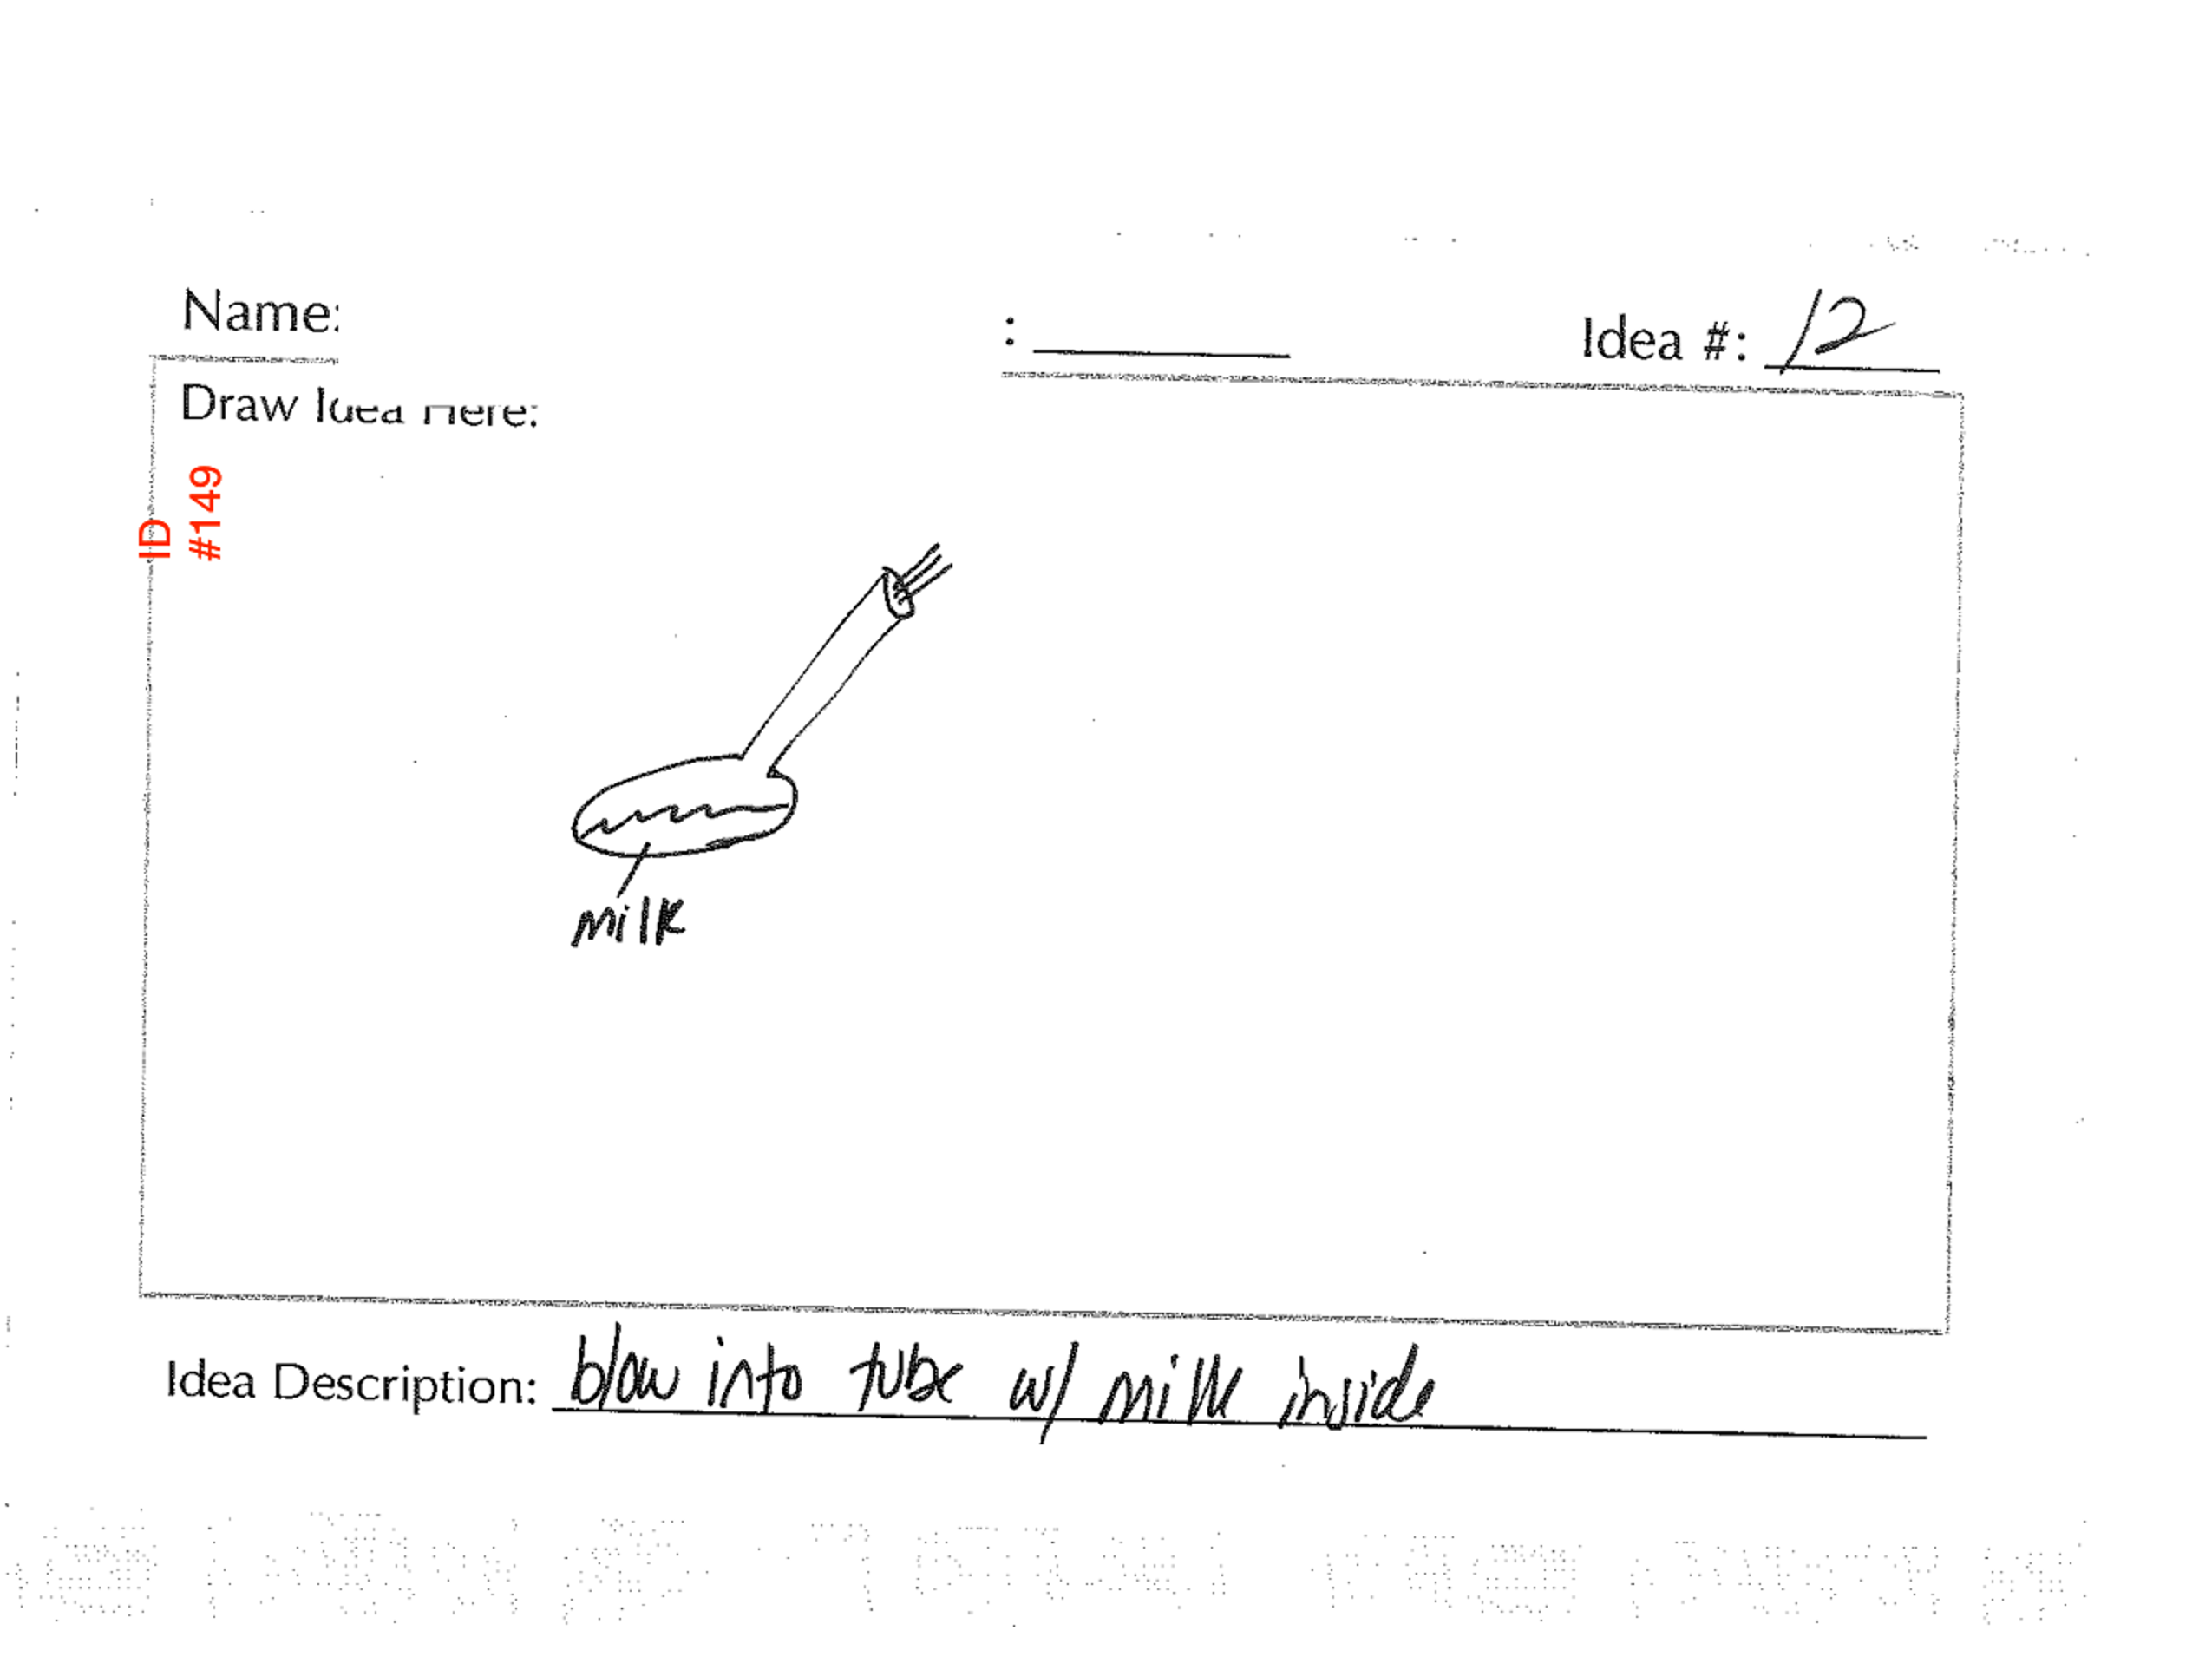 Name:
: Idea #: 12
Draw Idea Here:
ID
#149
milk
Idea Description: blow into tube w/ milk inside